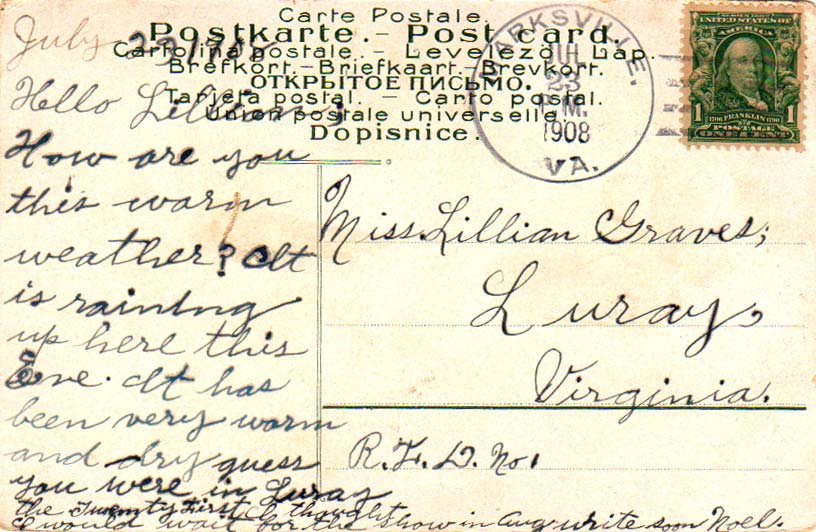 Carte Postale.
Postkarte. - Post card.
Cartolina postale. - Levelező - Lap.
Brefkort. - Briefkaart. - Brevkort.
ОТКРЫТОЕ ПИСЬМО.
Tarjeta postal. - Carto postal.
Union postale universelle.
Dopisnice.
ARKSVILLE.
JUL
23
P.M.
1908
VA.
UNITED STATES OF
AMERICA
1706 FRANKLIN 1790
POSTAGE
1 ONE CENT 1
July 23/1908
Hello Lillian;
How are you
this warm
weather? It
is raining
up here this
Eve. It has
been very warm
and dry guess
you were in Luray
the Twenty First I thought
I would wait for the show in Aug write soon Noel.
Miss. Lillian Graves;
Luray,
Virginia.
R.F.D. No 1